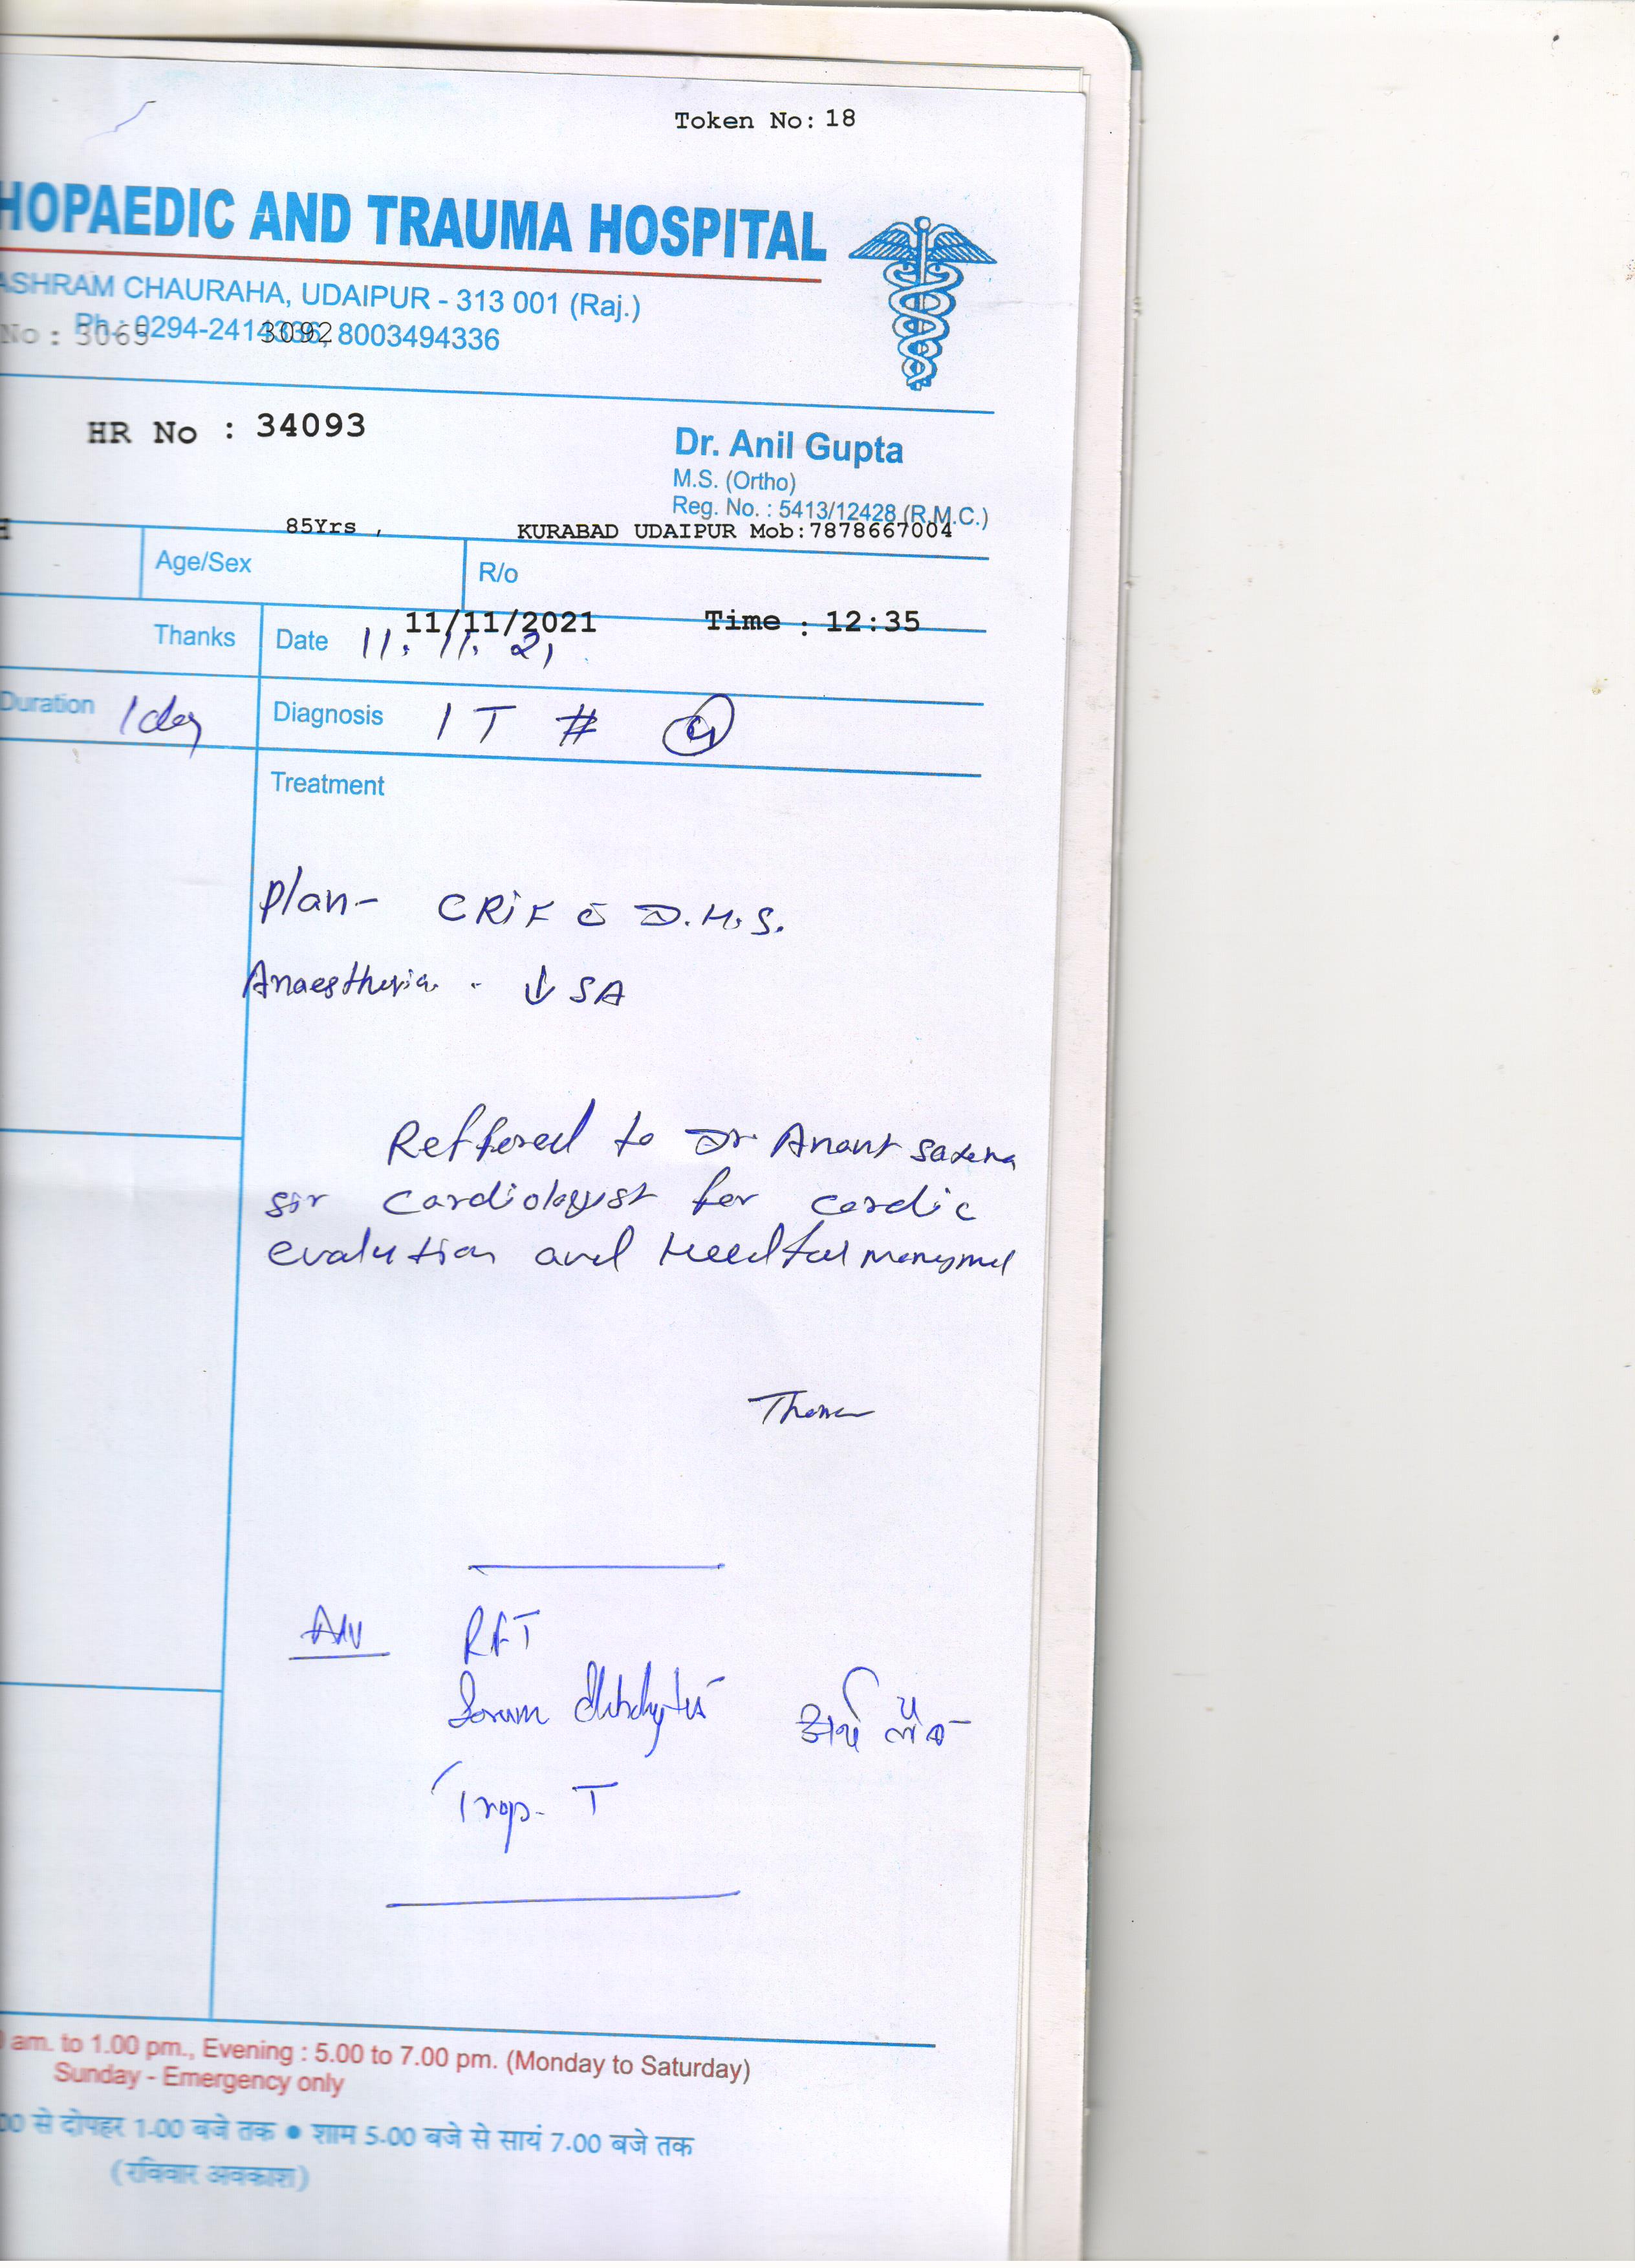 Token No: 18
HOPAEDIC AND TRAUMA HOSPITAL
ASHRAM CHAURAHA, UDAIPUR - 313 001 (Raj.)
Ph.: 0294-2414336, 8003494336
No : 3065 3092
HR No : 34093
Dr. Anil Gupta
M.S. (Ortho)
Reg. No. : 5413/12428 (R.M.C.)
H 85Yrs , KURABAD UDAIPUR Mob:7878667004
Age/Sex R/o
11/11/2021 Time : 12:35
Thanks Date 11. 11. 21
Duration 1 day Diagnosis I T #
Treatment
Plan- CRIF c̄ D.H.S.
Anaesthesia - ↓ SA
Reffered to Dr Anant Saxena
sir Cardiologist for cardic
evalution and Needful
Adv RFT
Serum Electrolytes
Trop- T
0 am. to 1.00 pm., Evening : 5.00 to 7.00 pm. (Monday to Saturday)
Sunday - Emergency only
00 से दोपहर 1.00 बजे तक ● शाम 5.00 बजे से सायं 7.00 बजे तक
(रविवार अवकाश)